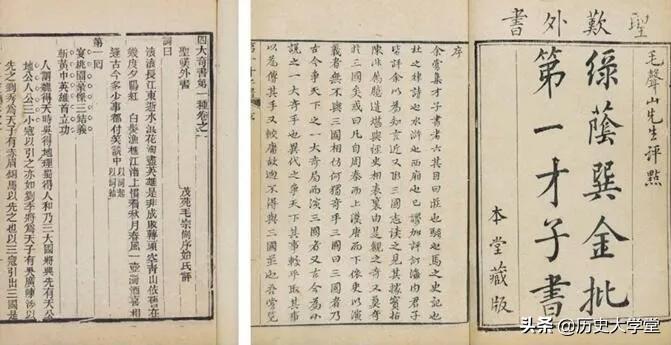 聖歎外書
毛聲山先生評點
綠蔭巽金批
第一才子書
本堂藏版
序
余嘗集才子書者六其目曰莊也騷也馬之史記也
杜之律詩也水滸也西廂也已謬加評訂海內君子
皆許余以為知言近又取三國志讀之見其據實指
陳非屬臆造堪與經史相表裏由是觀之奇又莫奇
於三國矣或曰凡自周秦而上漢唐而下依史以演
義者無不與三國相仿何獨奇乎三國曰三國者乃
古今爭天下之一大奇局而演三國者又古今為小
說之一大奇手也異代之爭天下其事較平取其事
以為傳其手又較庸故迥不得與三國並也吾嘗覽
四大奇書第一種卷之一
聖歎外書
茂苑毛宗崗序始氏評
詞曰
滾滾長江東逝水浪花淘盡英雄是非成敗轉頭空青山依舊在
幾度夕陽紅 白髮漁樵江渚上慣看秋月春風一壺濁酒喜相
逢古今多少事都付笑談中 以詞起
第一回
宴桃園豪傑三結義
斬黃巾英雄首立功
人謂魏得天時吳得地理蜀得人和乃三大國將興先有天公
地公人公三小寇以引之亦如劉季將為天子有吳廣陳涉以
先之劉秀將為天子有赤眉銅馬以先之也以三寇引出三國是
头条 @历史大学堂